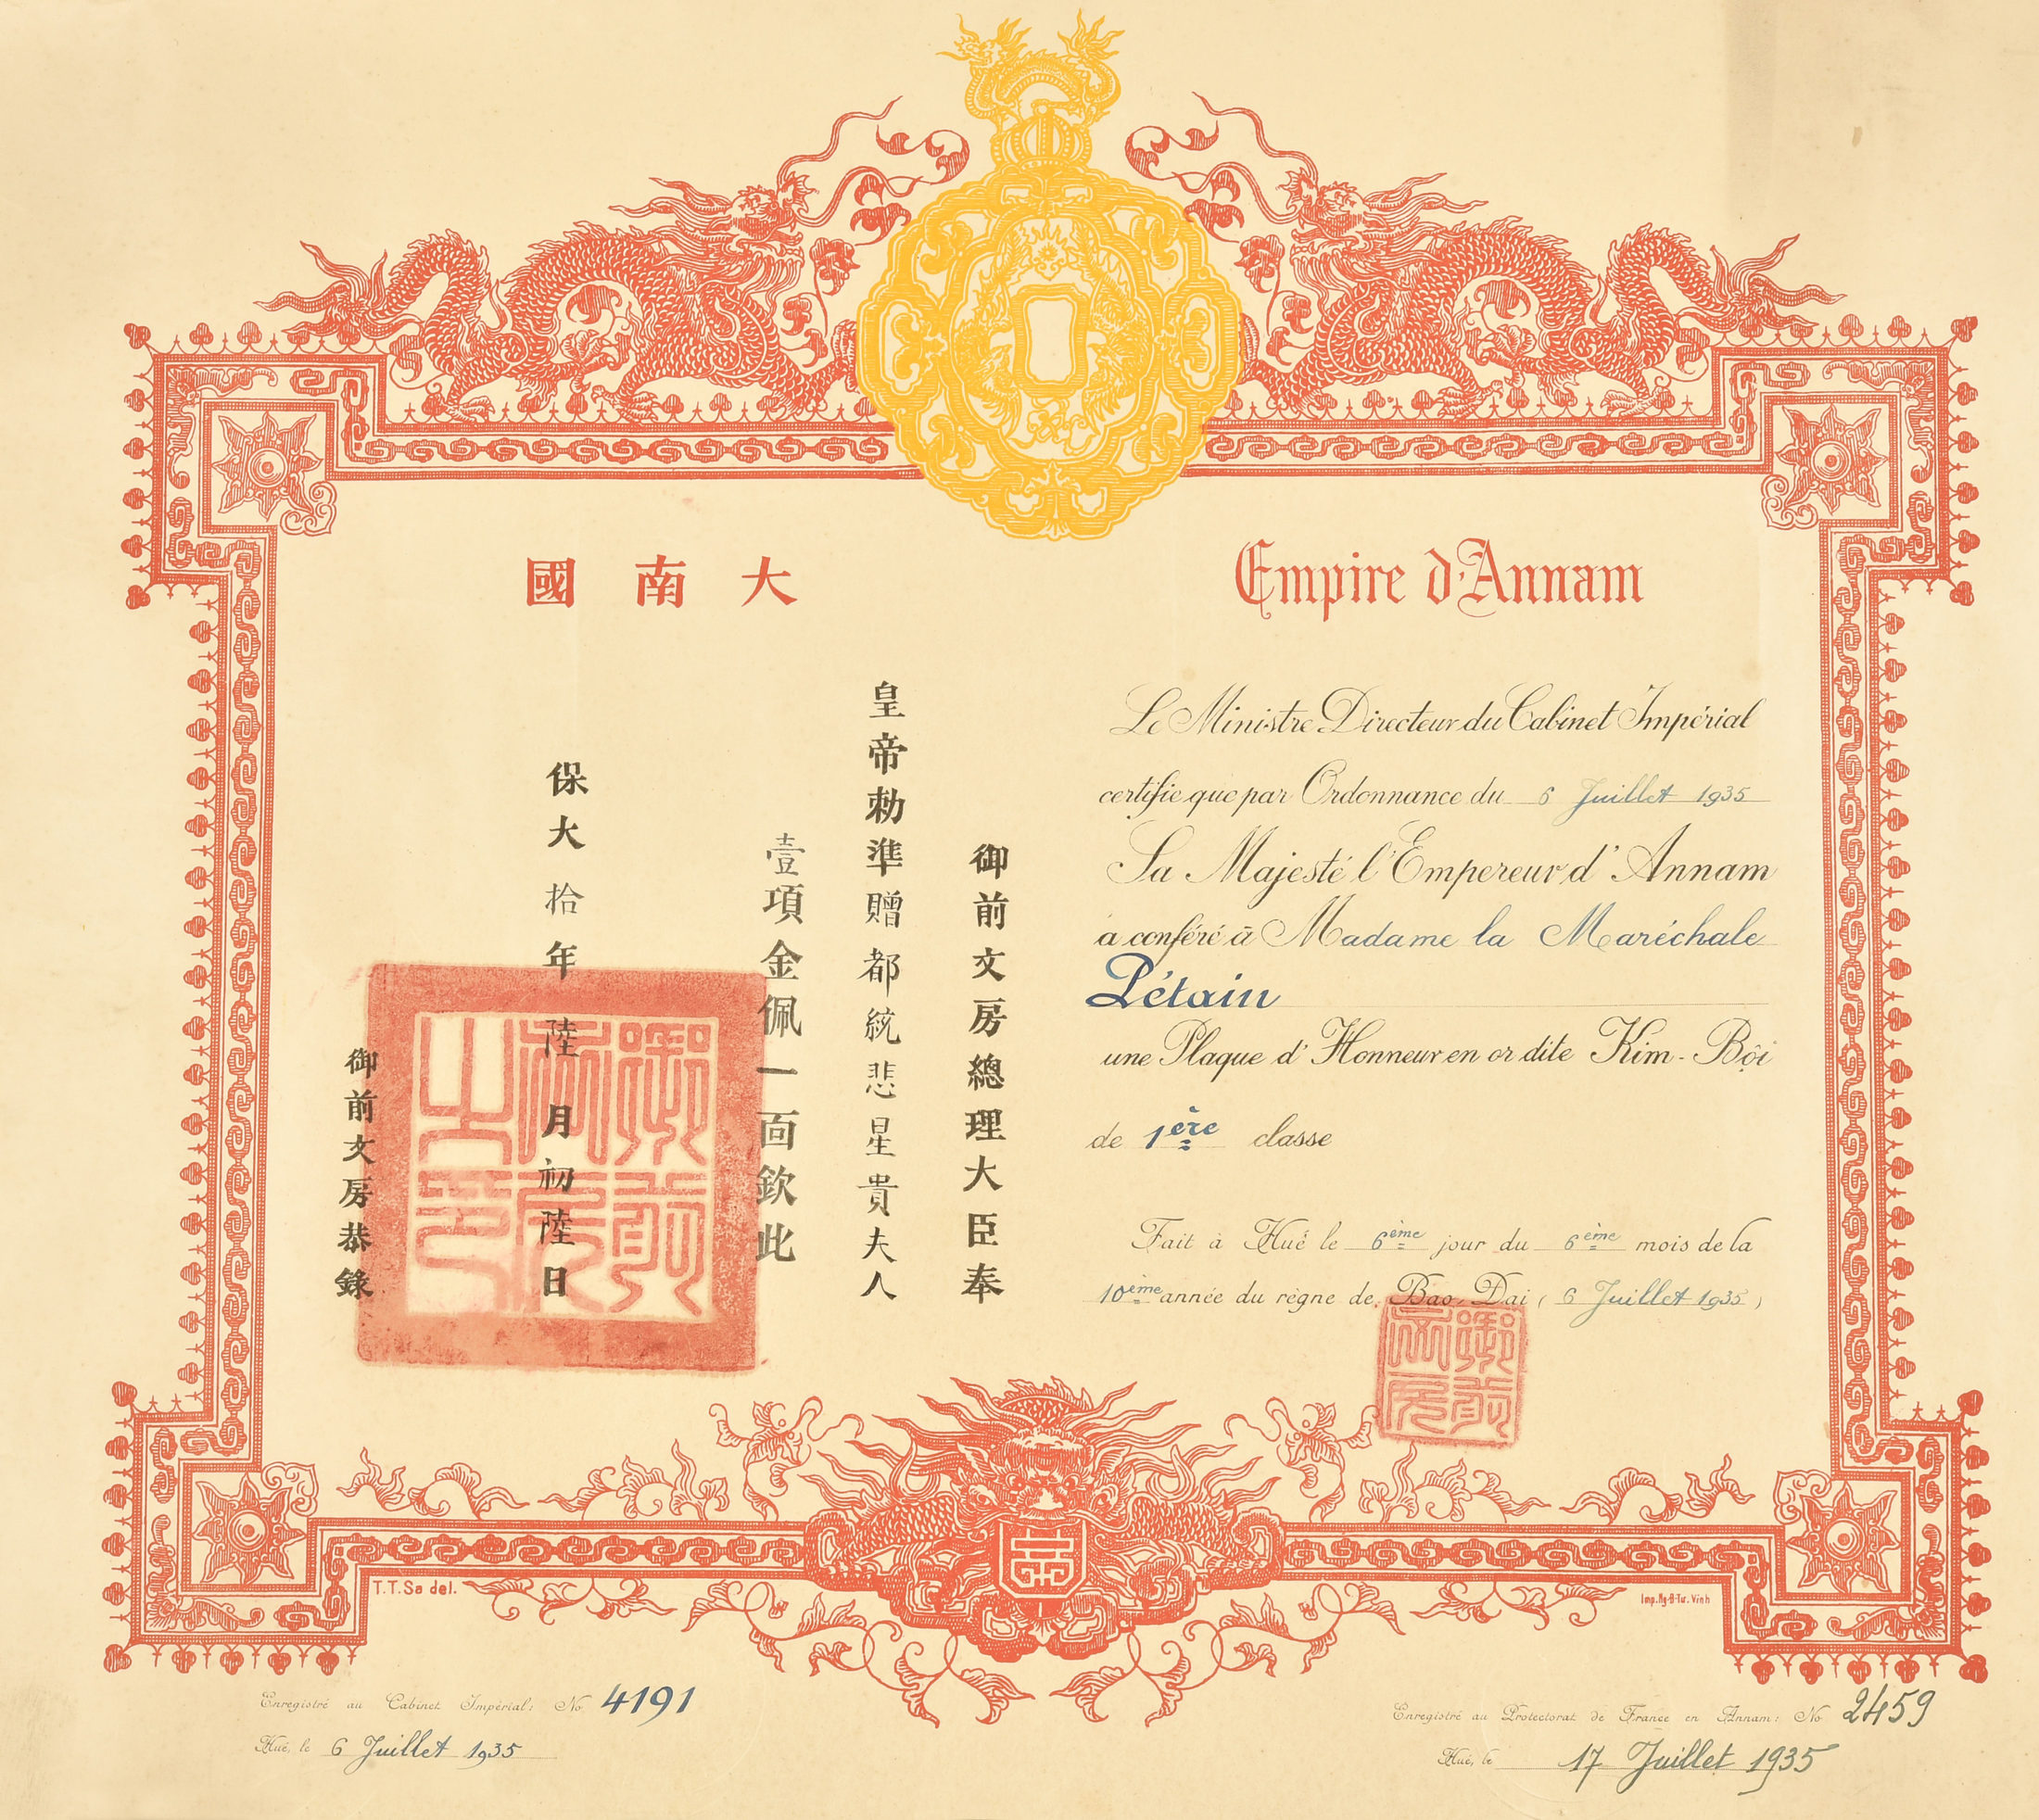 大南國
御前文房總理大臣奉
皇帝勅準贈都統悲星貴夫人
壹項金佩一面欽此
保大拾年陸月初陸日
御前文房恭錄
御前文房之印
Empire d'Annam
Le Ministre Directeur du Cabinet Impérial
certifie que par Ordonnance du 6 Juillet 1935
Sa Majesté l'Empereur d'Annam
a conféré à Madame la Maréchale
Pétain
une Plaque d'Honneur en or dite Kim-Bội
de 1ère classe
Fait à Hué le 6ème jour du 6ème mois de la
10ème année du règne de Bao Dai (6 Juillet 1935)
御前文房
T.T.Sa del.
Imp.Ng-D-Tu. Vinh
Enregistré au Cabinet Impérial: No 4191
Hué, le 6 Juillet 1935
Enregistré au Protectorat de France en Annam: No 2459
Hué, le 17 Juillet 1935